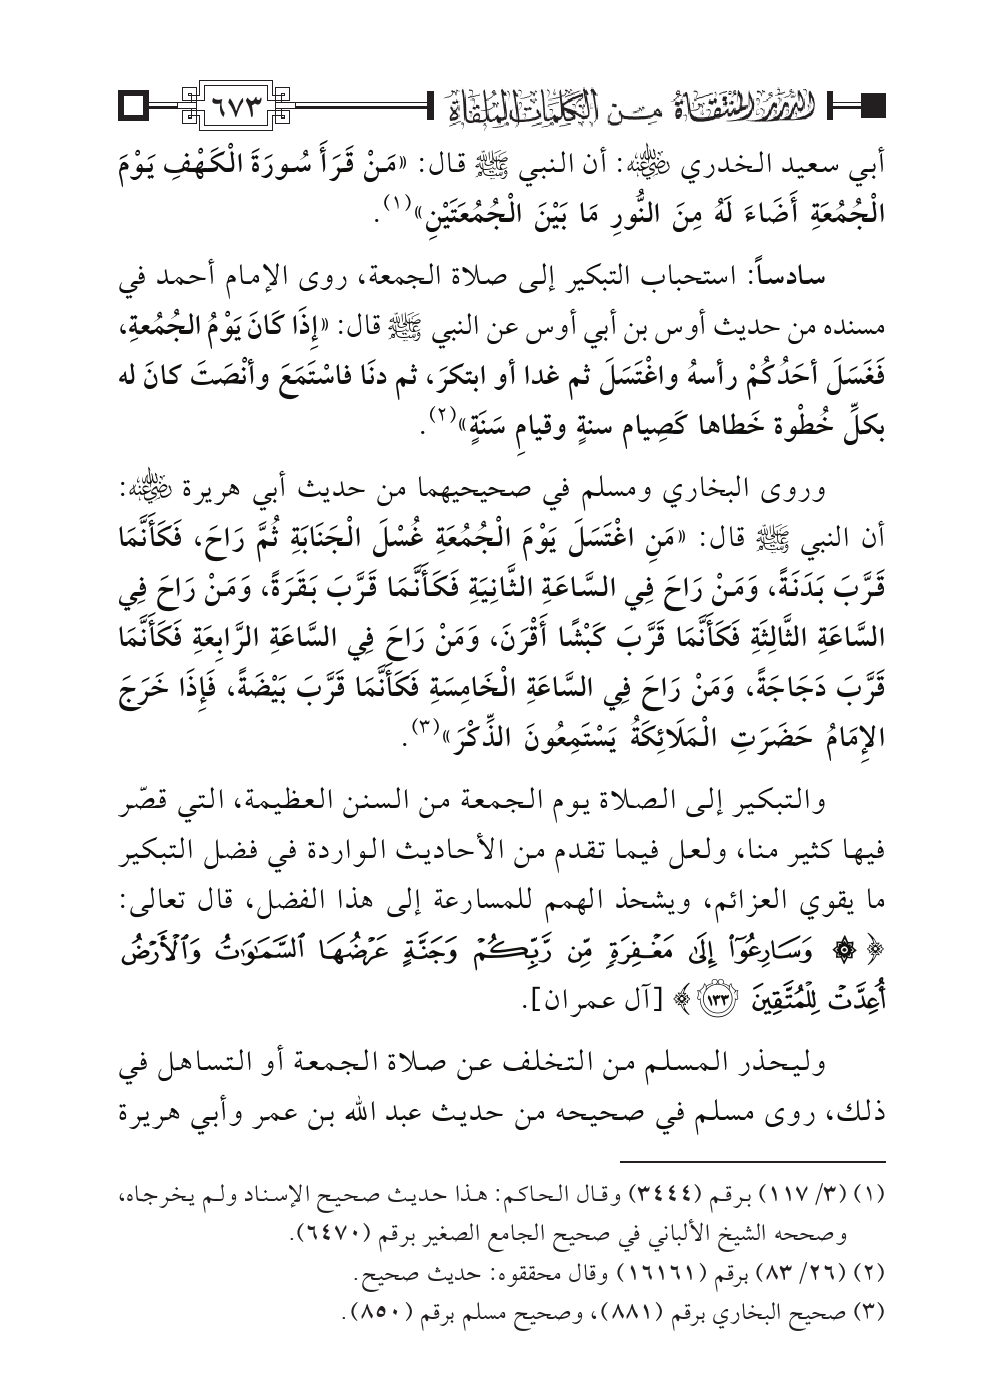 الدرر المنتقاة من الكلمات الملقاة
٦٧٣
أبي سعيد الخدري رضي الله عنه: أن النبي ﷺ قال: «مَنْ قَرَأَ سُورَةَ الْكَهْفِ يَوْمَ
الْجُمُعَةِ أَضَاءَ لَهُ مِنَ النُّورِ مَا بَيْنَ الْجُمُعَتَيْنِ»(١).
سادساً: استحباب التبكير إلى صلاة الجمعة، روى الإمام أحمد في
مسنده من حديث أوس بن أبي أوس عن النبي ﷺ قال: «إِذَا كَانَ يَوْمُ الجُمُعةِ،
فَغَسَلَ أحَدُكُمْ رأسهُ واغْتَسَلَ ثم غدا أو ابتكرَ، ثم دنَا فاسْتَمَعَ وأنْصَتَ كانَ له
بكلِّ خُطْوة خَطاها كَصِيام سنةٍ وقيامِ سَنَةٍ»(٢).
وروى البخاري ومسلم في صحيحيهما من حديث أبي هريرة رضي الله عنه:
أن النبي ﷺ قال: «مَنِ اغْتَسَلَ يَوْمَ الْجُمُعَةِ غُسْلَ الْجَنَابَةِ ثُمَّ رَاحَ، فَكَأَنَّمَا
قَرَّبَ بَدَنَةً، وَمَنْ رَاحَ فِي السَّاعَةِ الثَّانِيَةِ فَكَأَنَّمَا قَرَّبَ بَقَرَةً، وَمَنْ رَاحَ فِي
السَّاعَةِ الثَّالِثَةِ فَكَأَنَّمَا قَرَّبَ كَبْشًا أَقْرَنَ، وَمَنْ رَاحَ فِي السَّاعَةِ الرَّابِعَةِ فَكَأَنَّمَا
قَرَّبَ دَجَاجَةً، وَمَنْ رَاحَ فِي السَّاعَةِ الْخَامِسَةِ فَكَأَنَّمَا قَرَّبَ بَيْضَةً، فَإِذَا خَرَجَ
الإِمَامُ حَضَرَتِ الْمَلَائِكَةُ يَسْتَمِعُونَ الذِّكْرَ»(٣).
والتبكير إلى الصلاة يوم الجمعة من السنن العظيمة، التي قصّر
فيها كثير منا، ولعل فيما تقدم من الأحاديث الواردة في فضل التبكير
ما يقوي العزائم، ويشحذ الهمم للمسارعة إلى هذا الفضل، قال تعالى:
﴿ ۞ وَسَارِعُوٓا۟ إِلَىٰ مَغْفِرَةٍ مِّن رَّبِّكُمْ وَجَنَّةٍ عَرْضُهَا ٱلسَّمَٰوَٰتُ وَٱلْأَرْضُ
أُعِدَّتْ لِلْمُتَّقِينَ ١٣٣ ﴾ [آل عمران].
وليحذر المسلم من التخلف عن صلاة الجمعة أو التساهل في
ذلك، روى مسلم في صحيحه من حديث عبد الله بن عمر وأبي هريرة
(١) (٣/ ١١٧) برقم (٣٤٤٤) وقال الحاكم: هذا حديث صحيح الإسناد ولم يخرجاه،
وصححه الشيخ الألباني في صحيح الجامع الصغير برقم (٦٤٧٠).
(٢) (٢٦/ ٨٣) برقم (١٦١٦١) وقال محققوه: حديث صحيح.
(٣) صحيح البخاري برقم (٨٨١)، وصحيح مسلم برقم (٨٥٠).